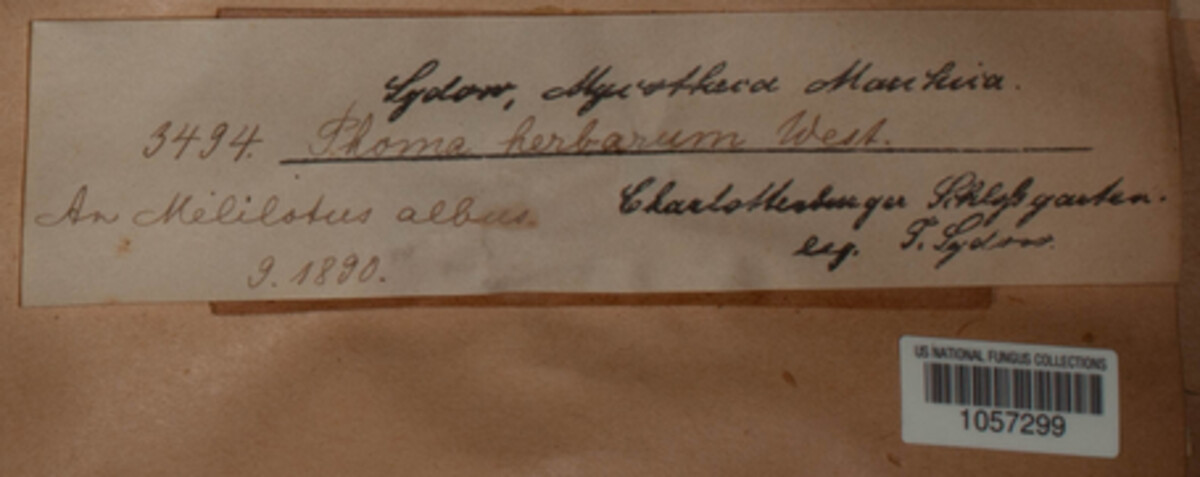 Sydow, Mycotheca Marchica.
3494. Phoma herbarum West.
An Melilotus albus.
Charlottenburger Schloßgarten.
9. 1890.
leg. P. Sydow.
US NATIONAL FUNGUS COLLECTIONS
1057299